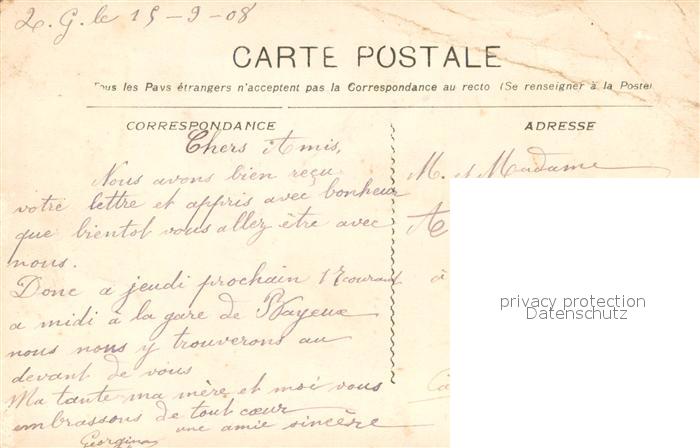 L. G. le 15-9-08
CARTE POSTALE
Tous les Pays étrangers n'acceptent pas la Correspondance au recto (Se renseigner à la Poste)
CORRESPONDANCE
Chers Amis,
Nous avons bien reçu
votre lettre et appris avec bonheur
que bientot vous allez être avec
nous.
Donc a jeudi prochain 17 courant
a midi à la gare de Bayeux
nous nous y trouverons au
devant de vous
Ma tante ma mère et moi vous
embrassons de tout cœur
une amie sincère
Georgina
ADRESSE
M. et Madame
A
à
privacy protection
Datenschutz